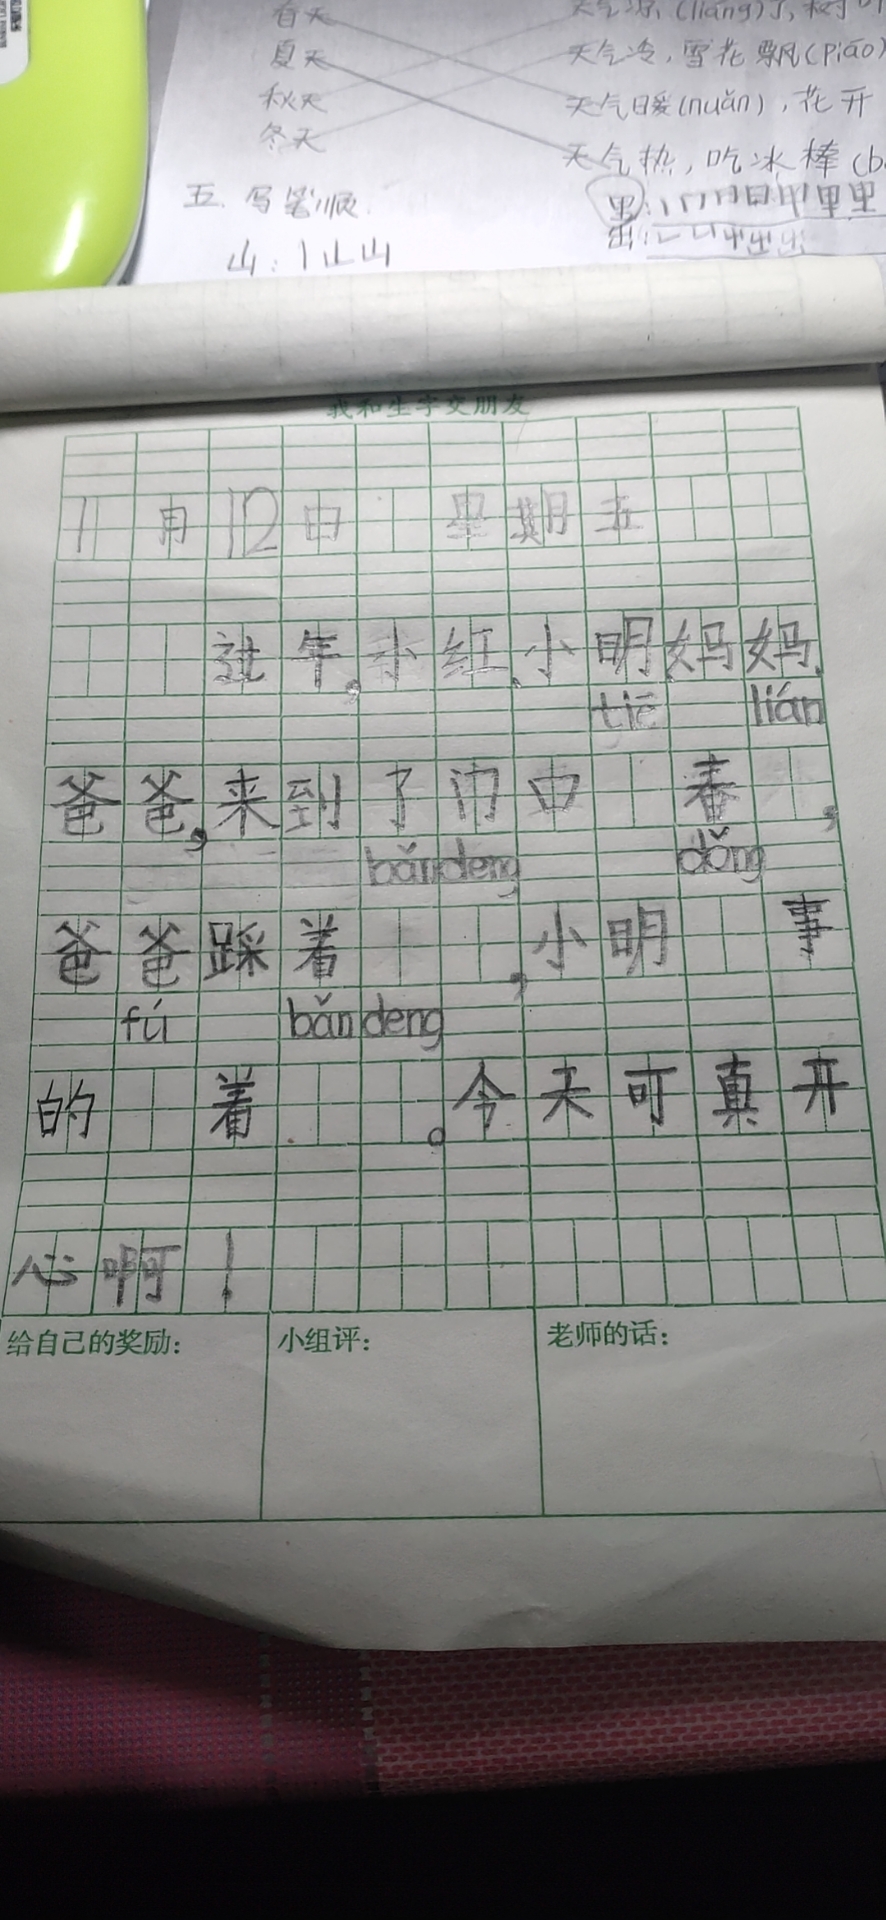 春天 天气凉(liáng)了,树叶
夏天 天气冷,雪花飘(piāo)
秋天 天气暖(nuǎn),花开
冬天
天气热,吃冰棒(b
五.写笔顺.
里:丨冂冂日甲甲里
山:丨山山
出:
我和生字交朋友
11月12日 星期五
过年,小红、小明、妈妈、
tiē lián
爸爸,来到了门口 春 ,
bǎn deng dǒng
爸爸踩着 ,小明 事
fú bǎn deng
的 着 。今天可真开
心啊!
给自己的奖励: 小组评: 老师的话: